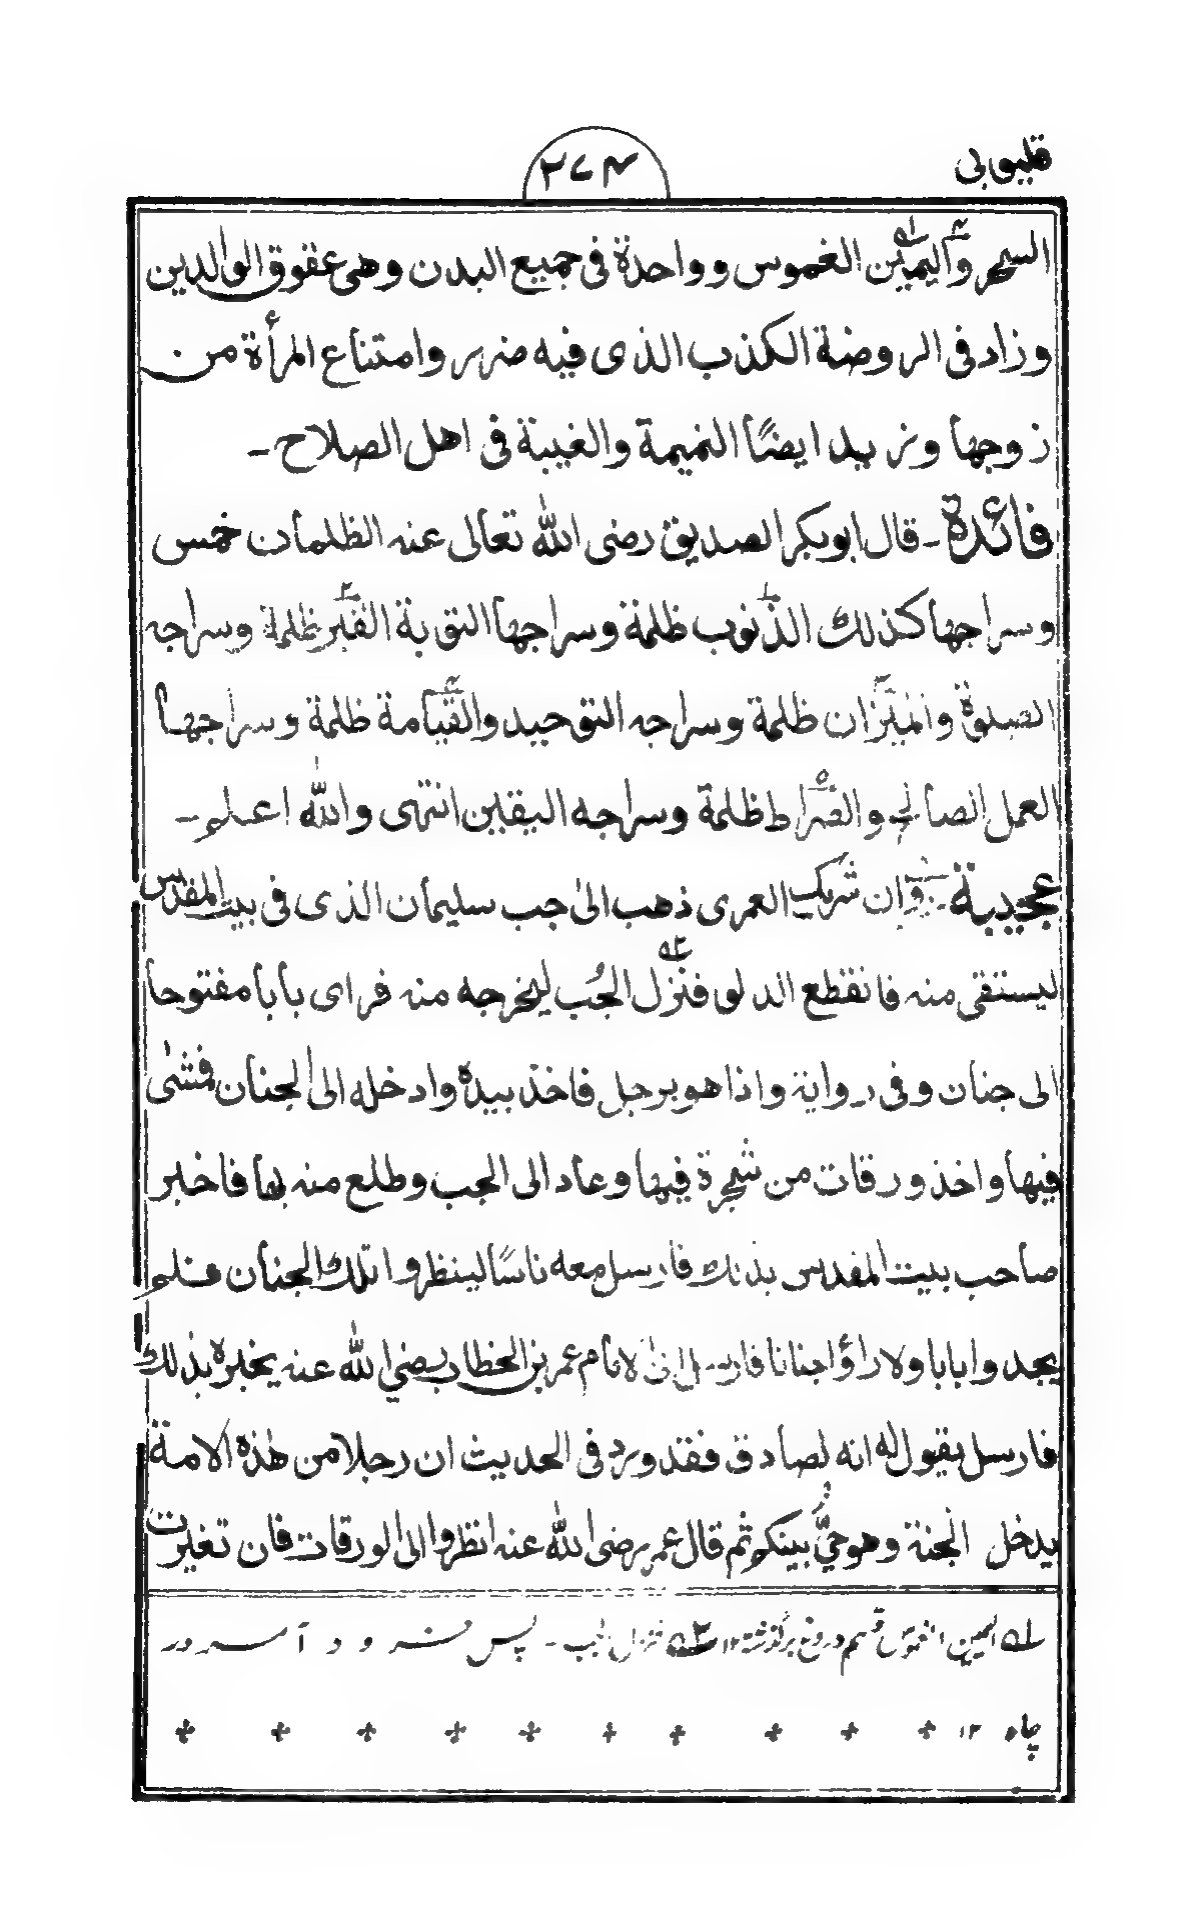 قليوبى
٢٧٤
السحر واليمين الغموس وواحدة فى جميع البدن وهى عقوق الوالدين
وزاد فى الروضة الكذب الذى فيه ضرر وامتناع المرأة من
زوجها ونزيد ايضًا النميمة والغيبة فى اهل الصلاح ـ
فائدة ـ قال ابوبكر الصديق رضى الله تعالى عنه الظلمات خمس
وسراجها كذلك الذنوب ظلمة وسراجها التوبة القبر ظلمة وسراجه
الصلوة والميزان ظلمة وسراجه التوحيد والقيامة ظلمة وسراجها
العمل الصالح والصراط ظلمة وسراجه اليقين انتهى والله اعلم ـ
عجيبة ـ وان شريك العمرى ذهب الى جب سليمان الذى فى بيت المقدس
ليستقى منه فانقطع الدلو فنزل الجُب ليخرجه منه فراى بابا مفتوحا
الى جنان وفى رواية واذا هو برجل فاخذ بيده وادخله الى الجنان فمشى
فيها واخذ ورقات من شجرة فيها وعاد الى الجب وطلع منه بها فاخبر
صاحب بيت المقدس بذلك فارسل معه ناسًا لينظروا تلك الجنان فلم
يجدوا بابا ولا راؤا جنانا فارسل الى الامام عمر بن الخطاب رضي الله عنه يخبره بذلك
فارسل يقول له انه لصادق فقد ورد فى الحديث ان رجلا من هذه الامة
يدخل الجنة وهو حيٌّ بينكم ثم قال عمر رضى الله عنه انظروا الى الورقات فان تغيرت
ــه۱ اليمين الغموس قسم دروغ برگذشته ۱۲ ــه۲ فنزل الجب ـ پس فرود آمد در
چاه ۱۲